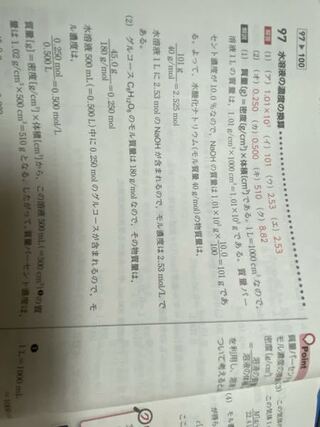 97 ▶ 100
97 水溶液の濃度の換算
解答 (1) (ア) 1.01×10³ (イ) 101 (ウ) 2.53 (エ) 2.53
(2) (オ) 0.250 (カ) 0.500 (キ) 510 (ク) 8.82
解説 (1) 質量(g)=密度(g/cm³)×体積(cm³)である。1L=1000cm³なので,
溶液1Lの質量は, 1.01g/cm³×1000cm³=1.01×10³gである。質量パー
セント濃度が10.0%なので, NaOHの質量は1.01×10³g×10.0/100=101gであ
る。よって, 水酸化ナトリウム(モル質量40g/mol)の物質量は,
101g/40g/mol=2.525mol
水溶液1Lに2.53molのNaOHが含まれるので, モル濃度は2.53mol/Lで
ある。
(2) グルコースC₆H₁₂O₆のモル質量は180g/molなので, その物質量は,
45.0g/180g/mol=0.250mol
水溶液500mL(=0.500L)中に0.250molのグルコースが含まれるので, モ
ル濃度は,
0.250mol/0.500L=0.500mol/L
質量(g)=密度(g/cm³)×体積(cm³)から, この溶液500mL(=500cm³)❶の質
量は1.02g/cm³×500cm³=510gとなる。したがって, 質量パーセント濃度は,
Point
質量パーセ
モル濃度の
密度(g/cm³)
を利用し, 溶
ついて考えると
(4) モル
❶
1L=1000mL